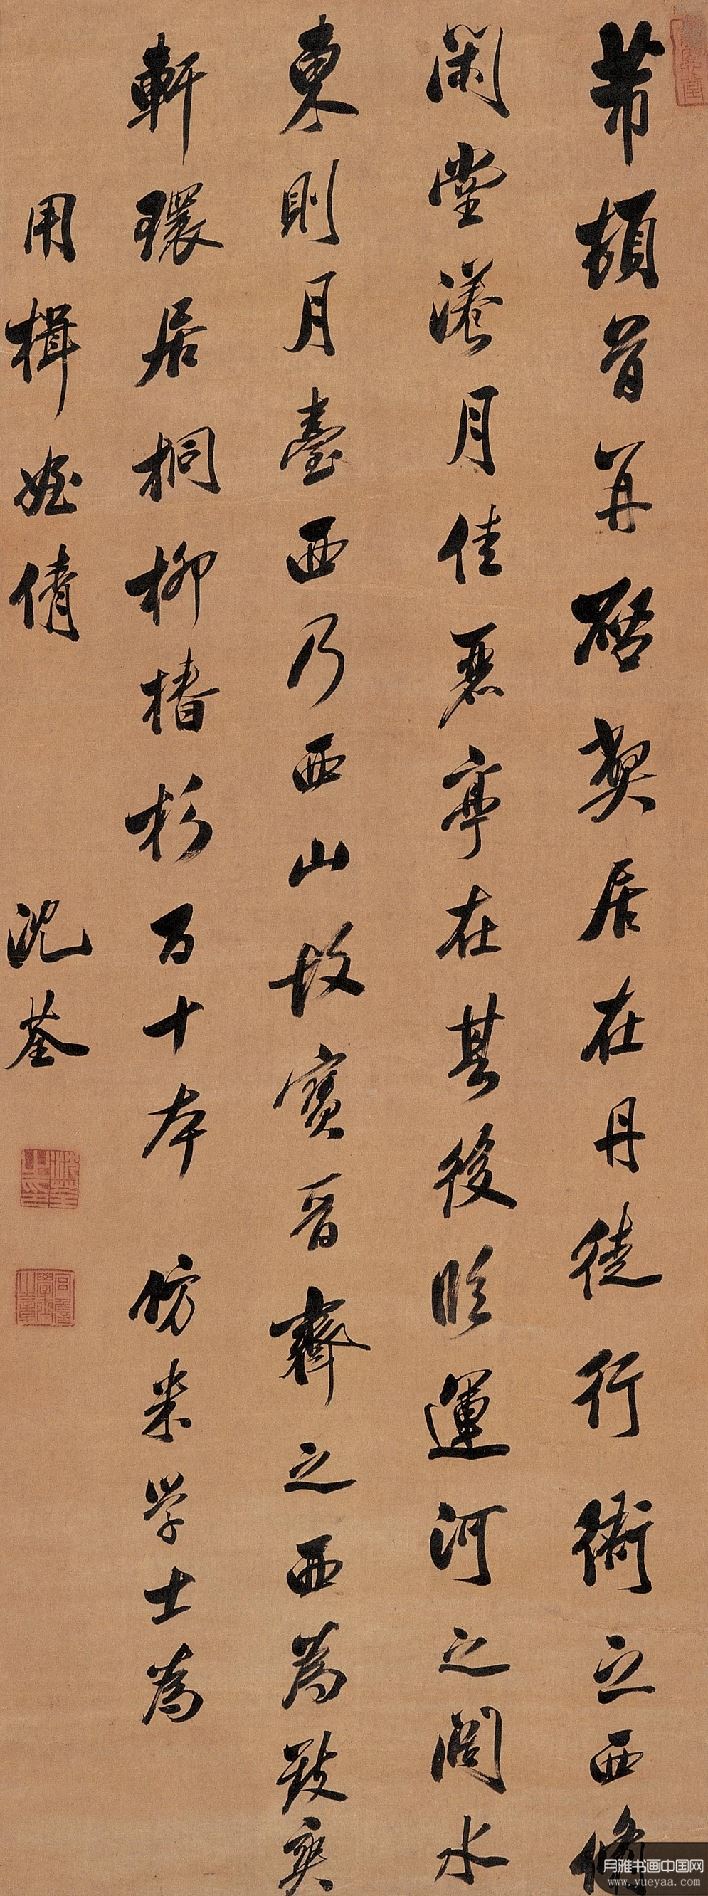 芾頓首再啓弊居在丹徒行衙之西脩
閑堂漾月佳麗亭在其後臨運河之闊水
東則月臺西乃西山故寶晉齋之西為致爽
軒環居桐柳椿杉百十本 倣米学士為
用楫姪倩 沈荃
月雅书画中国网
www.yueyaa.com